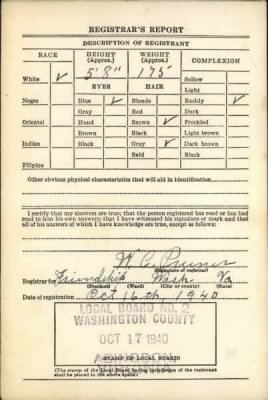 REGISTRAR'S REPORT
DESCRIPTION OF REGISTRANT
RACE HEIGHT (Approx.) WEIGHT (Approx.) COMPLEXION
5' 8" 175
White ✓ Sallow
Light
EYES HAIR
Negro Blue ✓ Blonde Ruddy ✓
Gray Red Dark
Oriental Hazel Brown ✓ Freckled
Brown Black Light brown
Indian Black Gray ✓ Dark brown
Bald Black
Filipino
Other obvious physical characteristics that will aid in identification
I certify that my answers are true; that the person registered has read or has had
read to him his own answers; that I have witnessed his signature or mark and that
all of his answers of which I have knowledge are true, except as follows:
W. C.
(Signature of registrar)
Registrar for Friendship Wash. Va
(Precinct) (Ward) (City or county) (State)
Date of registration Oct 16th, 1940
LOCAL BOARD NO. 2
WASHINGTON COUNTY
OCT 17 1940
ABINGDON
(STAMP OF LOCAL BOARD)
(The stamp of the Local Board having jurisdiction of the registrant
shall be placed in the above space.)